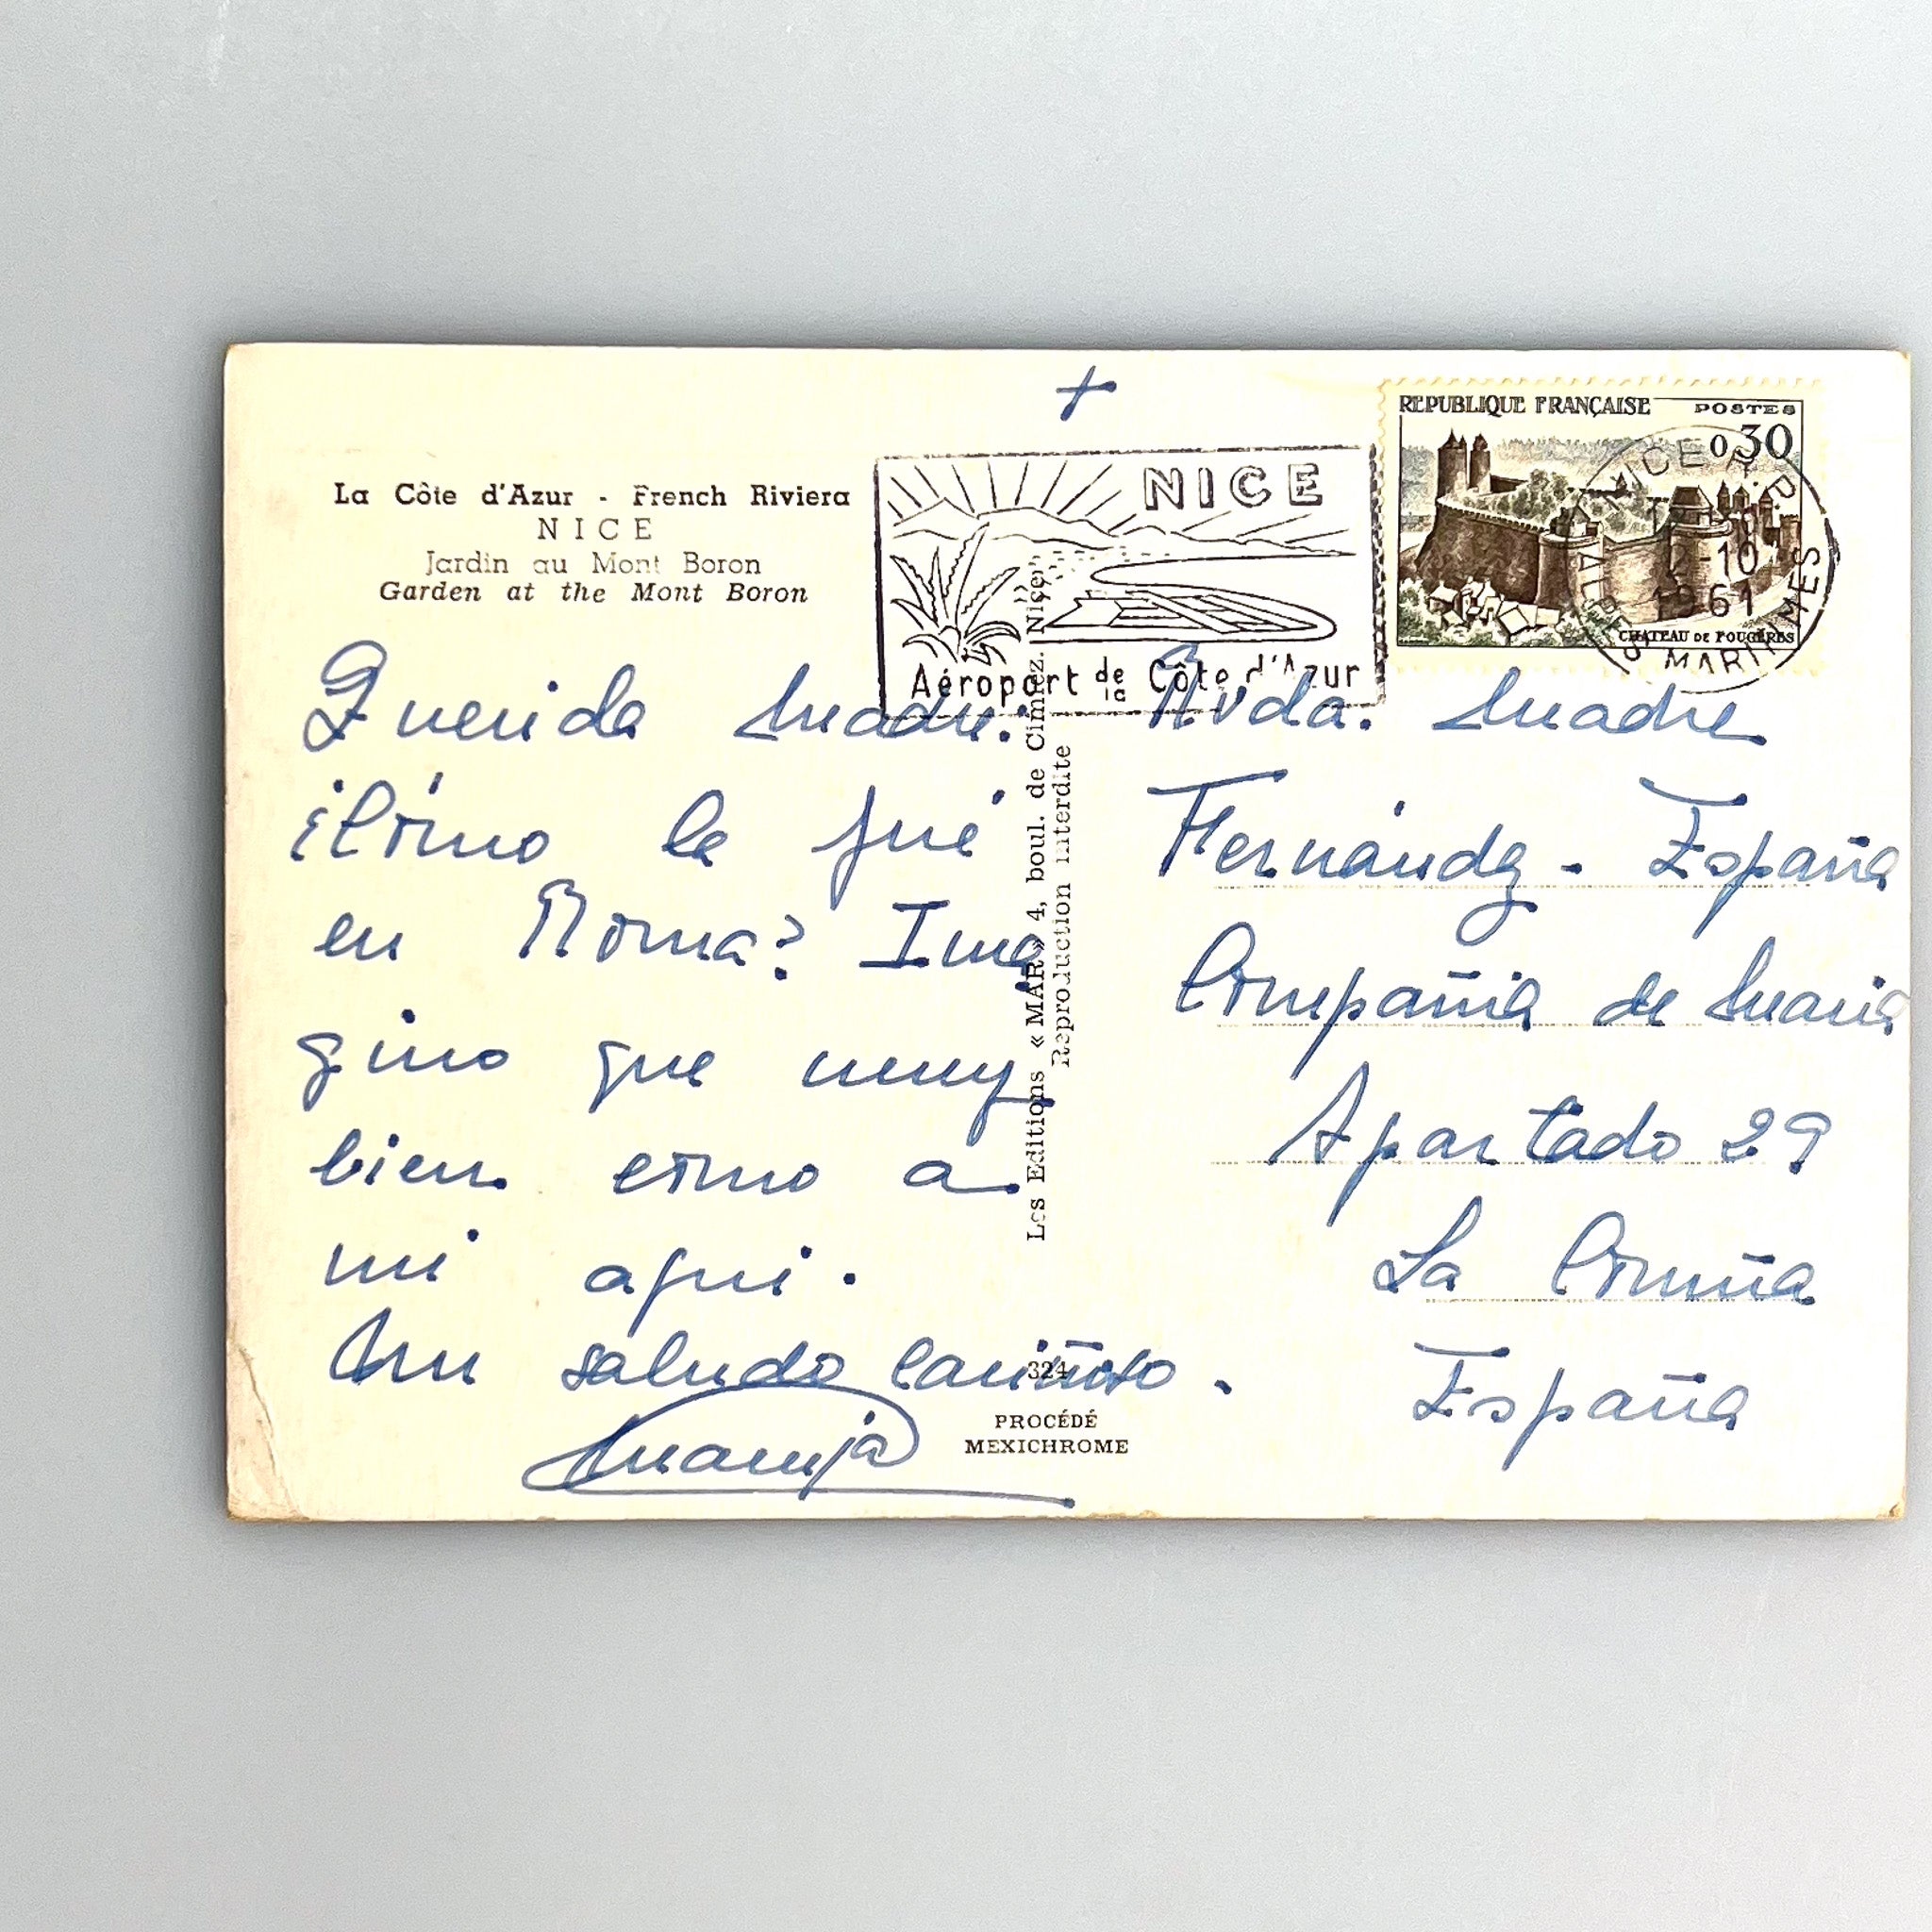 +
La Côte d'Azur - French Riviera
NICE
Jardin au Mont Boron
Garden at the Mont Boron
NICE
Aéroport de la Côte d'Azur
REPUBLIQUE FRANÇAISE POSTES
0,30
CHATEAU DE FOUGÈRES
NICE R.P.
-10
1961
ALPES MARITIMES
Querida Madre:
¿Cómo le fué
en Roma? Ima
gino que muy
bien como a
mi aqui.
Un saludo cariñoso.
Maruja
Les Editions « MAR » 4, boul. de Cimiez. Nice
Reproduction interdite
324
PROCÉDÉ
MEXICHROME
Rvda. Madre
Fernández - España
Compañia de Maria
Apartado 29
La Coruña
España